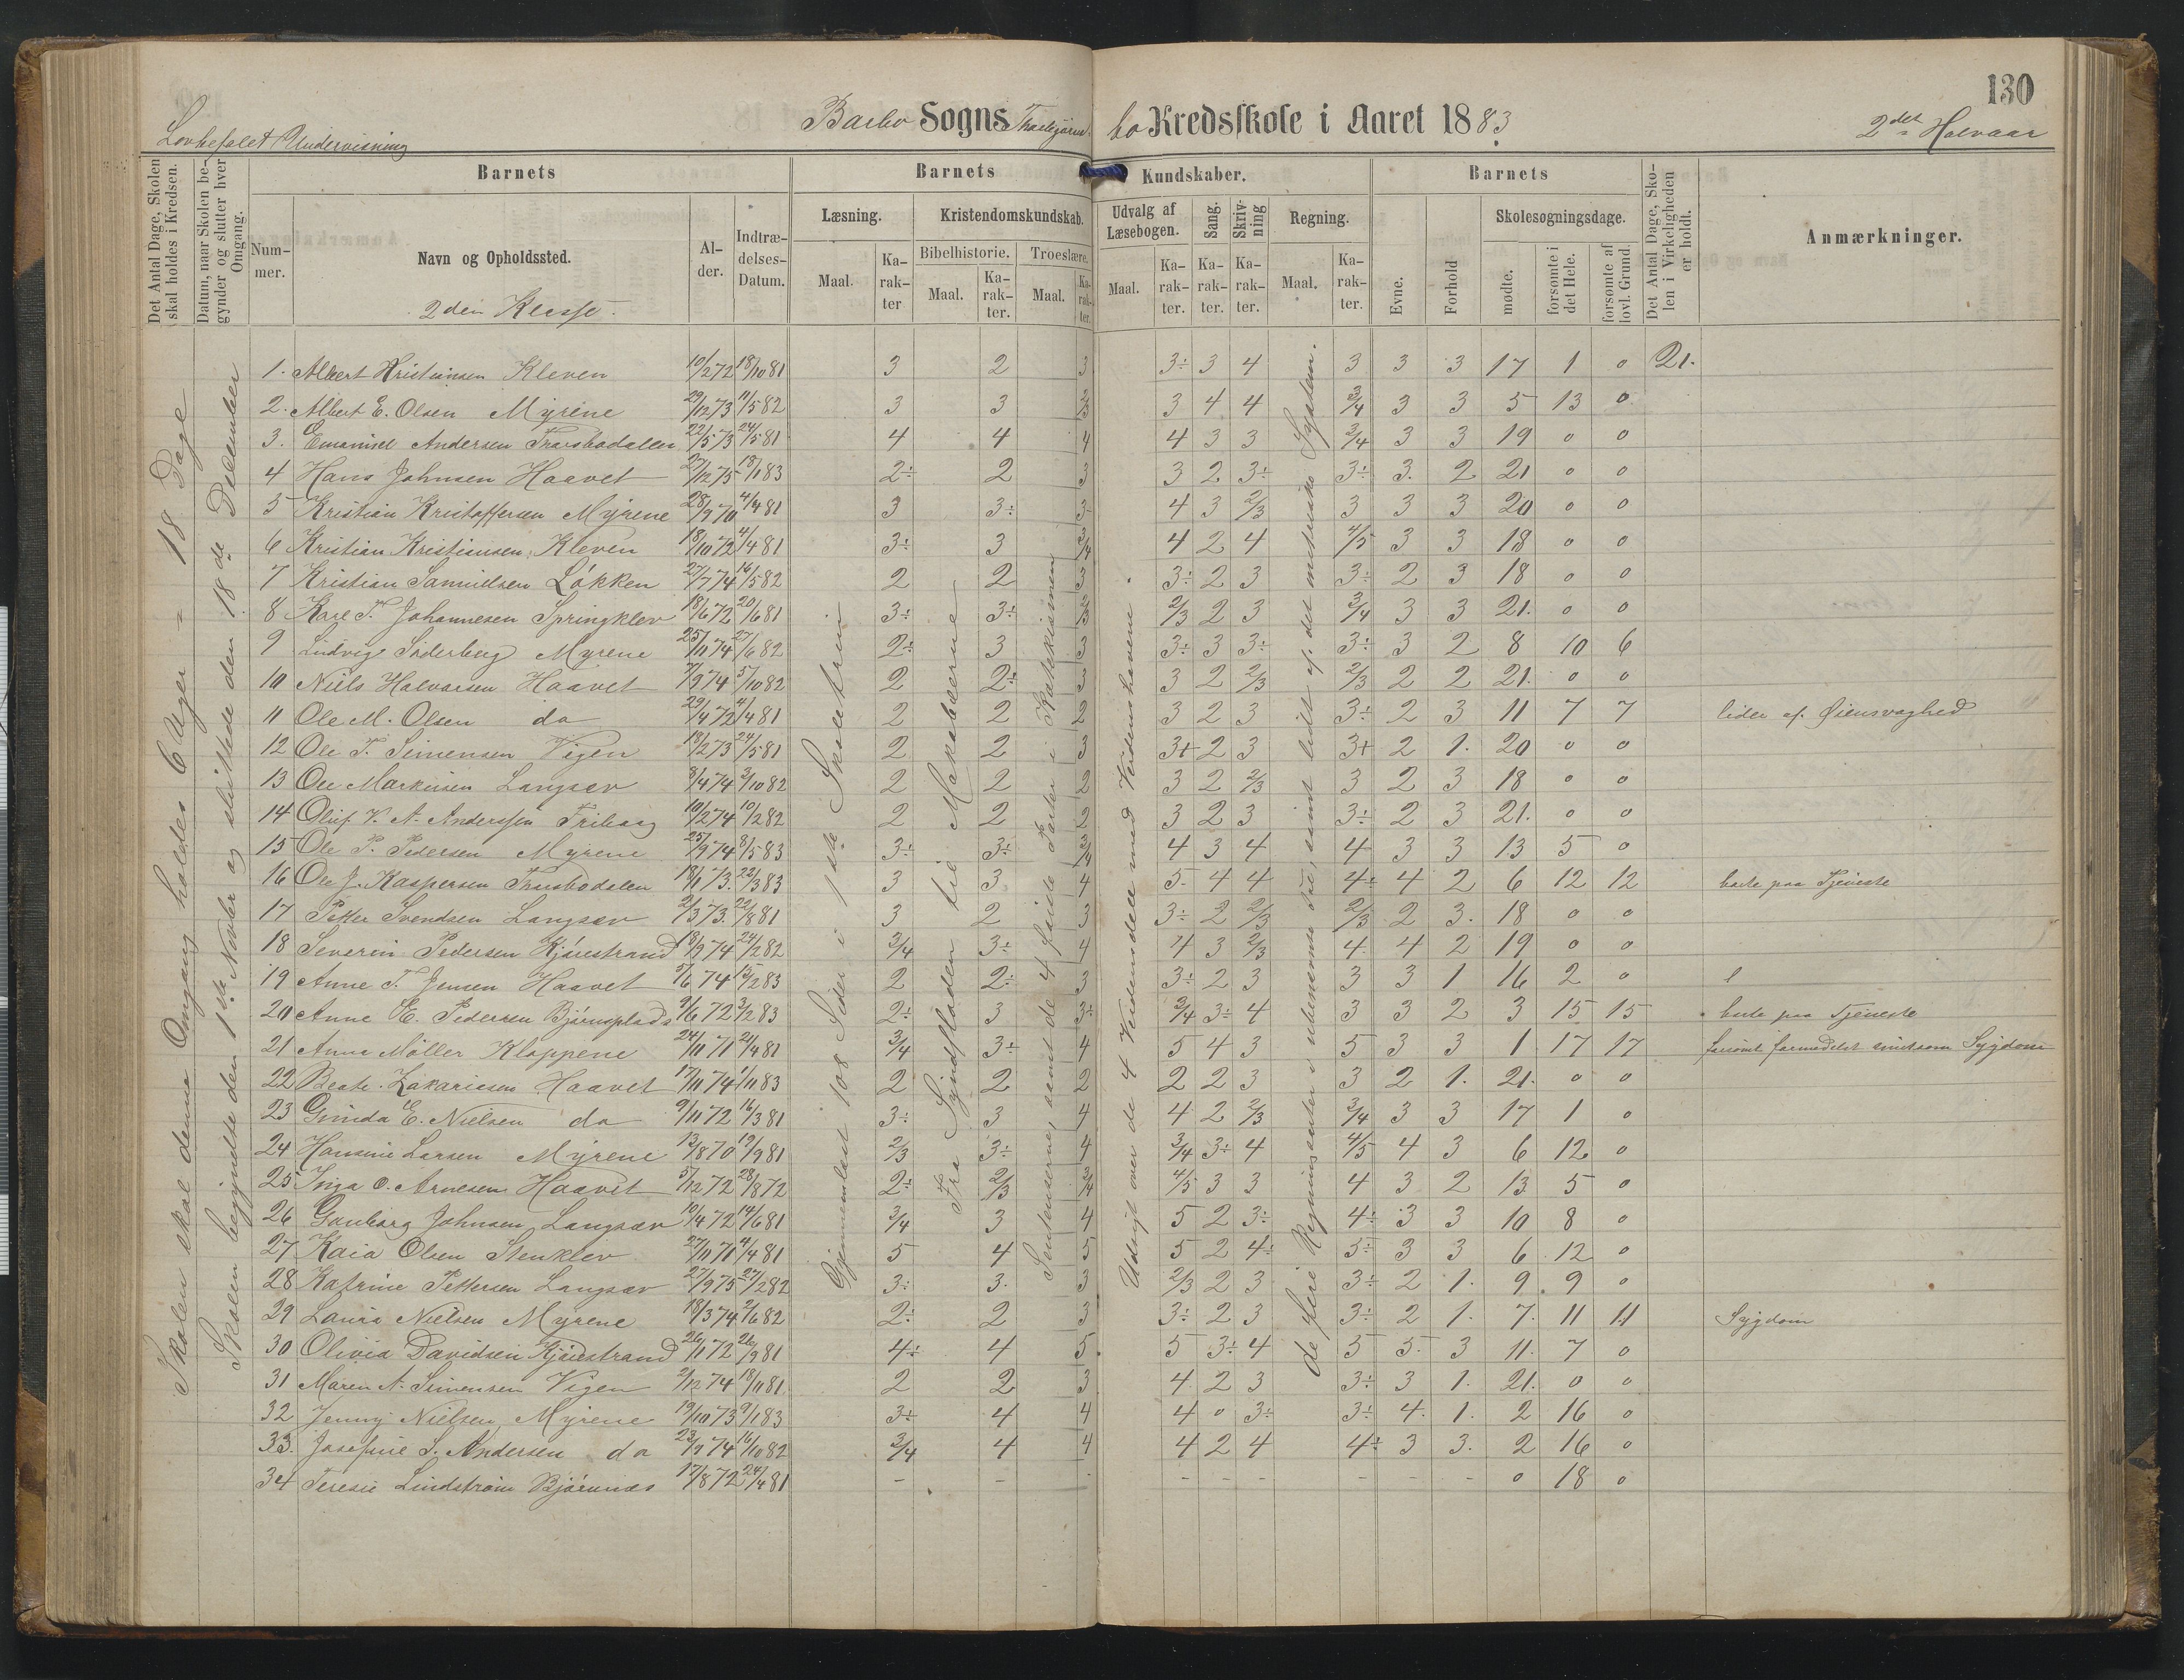 130
Lovbefalet Undervisning
Barbo Sogns bo Kredsskole i Aaret 1883
2det Halvaar
Det Antal Dage, Skolen skal holdes i Kredsen.
Datum, naar Skolen begynder og slutter hver Omgang.
Barnets
Barnets
Kundskaber.
Barnets
Det Antal Dage, Skolen i Virkeligheden er holdt.
Anmærkninger.
Nummer.
Navn og Opholdssted.
Alder.
Indtrædelses-Datum.
Læsning.
Kristendomskundskab.
Udvalg af Læsebogen.
Sang.
Skrivning
Regning.
Evne.
Forhold
Skolesøgningsdage.
Bibelhistorie.
Troeslære.
Maal. Karakter
Maal. Karakter.
Maal. Karakter.
Maal. Karakter.
Karakter.
Karakter.
Maal. Karakter.
mødte.
forsømte i det Hele.
forsømte af lovl. Grund.
2den Klasse.
Skolen skal denne Omgang holdes 6 Uger = 18 Dage
Skolen begyndte den 1ste Novbr og sluttede den 18de December
Gjennemlæst 108 Sider i 1ste Skoletrin
Fra Syndfloden til Makabæerne
Sentenserne, samt de 4 første Parter i Katekismen
Udsigt over de 4 Verdensdele med Verdenshavene.
de fire Regningsarter i ubenævnte Tal, samt lidt af det metriske System.
1. Albert Kristiansen Kleven 10/2 72 18/10 81 3 2 3 3÷ 3 4 3 3 3 17 1 0 21.
2. Albert E. Olsen Myrene 29/12 73 11/5 82 3 3 2/3 3 4 4 3/4 3 3 5 13 0
3. Emanuel Andersen 22/5 73 24/5 81 4 4 4 4 3 3 3/4 3 3 19 0 0
4 Hans Johnsen Haavet 27/12 75 18/1 83 2÷ 2 3 3 2 3÷ 3÷ 3. 2 21 0 0
5 Kristian Kristoffersen Myrene 28/9 70 4/4 81 3 3÷ 3÷ 4 3 2/3 3 3 3 20 0 0
6 Kristian Kristiansen Kleven 18/10 72 4/4 81 3÷ 3 3/4 4 2 4 4/5 3 3 18 0 0
7 Kristian Samuelsen Løkken 27/7 74 16/5 82 2 2 3 3÷ 2 3 3÷ 2 3 18 0 0
8 Karl T. Johannesen Springklev 18/6 72 20/6 81 3÷ 3÷ 2/3 2/3 2 3 3/4 3 3 21. 0 0
9 Ludvig Søderberg Myrene 25/11 74 27/6 82 2÷ 3 3 3÷ 3 3÷ 3÷ 3 2 8 10 6
10 Niels Halvorsen Haavet 7/9 74 5/10 82 2 2÷ 3 3 2 2/3 2/3 2 2 21. 0 0
11 Ole M. Olsen do 29/4 72 4/4 81 2 2 2 3 2 3 3÷ 2 3 11 7 7 lider af Øiensvaghed
12 Ole T. Simensen Vigen 18/2 73 24/5 81 2 2 3 3+ 2 3 3+ 2 1. 20 0 0
13 Ole Markusen Langsæv 8/4 74 3/10 82 2 2 2 3 2 2/3 3 2 3 18 0 0
14 Oluf K. A. Anderssen 10/2 74 10/2 82 2 2 2 3 2 3 3÷ 2 3 21. 0 0
15 Ole P. Pedersen Myrene 25/9 74 8/5 83 3÷ 3÷ 3/4 4 3 4 4 3 3 13 5 0
16 Ole J. Kaspersen 18/1 73. 22/3 83 3 3 4 5. 4 4 4÷ 4 2 6 12 12 borte paa Tjeneste
17 Petter Svendsen Langsæv 2/3 73. 22/8 81 3 2 3 3÷ 2 2/3 2/3 2 3. 18 0 0
18 Severin Pedersen Kjørestrand 18/9 74 24/2 82 3/4 3÷ 4 4 3 2/3 4. 4 2 19 0 0
19 Anne T. Jensen Haavet 5/6 74 15/2 83 2 2÷ 3 3÷ 2 3 3 3 1 16 2 0
20 Anne E. Pedersen Bjørnsplads 9/6 72 3/2 83 2÷ 3 3÷ 3/4 3÷ 4 3 3 2 3 15 15 borte paa Tjeneste
21 Anna Møller Kloppene 24/11 71 21/4 81 3/4 3÷ 4 5 4 3 5 3 3 1 17 17 forsømt formedelst smitsom Sygdom
22 Beate Zakariesen Haavet 17/11 74 1/11 83 2 2 2 2 2 3 3 2 1. 21. 0 0
23 Gunda E. Nielsen do 9/11 72 16/3 81 3÷ 3 4 4 2 2/3 3/4 3 3 17 1 0
24 Hansine Larsen Myrene 13/8 70 19/9 81 2/3 3÷ 4 3/4 3÷ 4 4/5 4 3 6 12 0
25 Inga O. Arnesen Haavet 5/12 72 28/8 72 2÷ 2/3 3/4 4/5 3 3 4 3 2 13 5 0
26 Gunborg Johnsen Langsæv 10/4 72 14/6 81 3/4 3 4 5 2 3÷ 4÷ 3 3 10 8 0
27 Kaia Olsen Stenklev 27/11 71 4/4 81 5 4 5 5 2 4÷ 5÷ 3 3 6 12 0
28 Katrine Pettersen Langsæv 27/9 75 27/2 82 3÷ 3. 3 2/3 2 3 3÷ 2 1. 9 9 0
29 Laura Nielsen Myrene 18/3 74 2/6 82 2÷ 2 3 3÷ 2 3 3÷ 2 1. 7. 11 11 Sygdom
30 Olivia Davidsen Kjørestrand 26/1 72 26/9 81 4÷ 4 5 5 3÷ 4 5 5. 3 11. 7 0
31 Maren A. Simensen Vigen 2/12 74 18/11 81 2 2 3 4 2 3 3÷ 3 1. 21. 0 0
32 Jenny Nielsen Myrene 19/10 73 9/1 83 3÷ 4 4 4 0 3÷ 3÷ 4. 1. 2 16 0
33. Josefine S. Andersen do 23/9 74 16/10 82 3/4 4 4 4 2 4 4÷ 3 3. 2 16 0
34 Teresie Lindstrøm Bjørnnæs 17/8 72 24/4 81 - - - - - - - - - 0 18 0